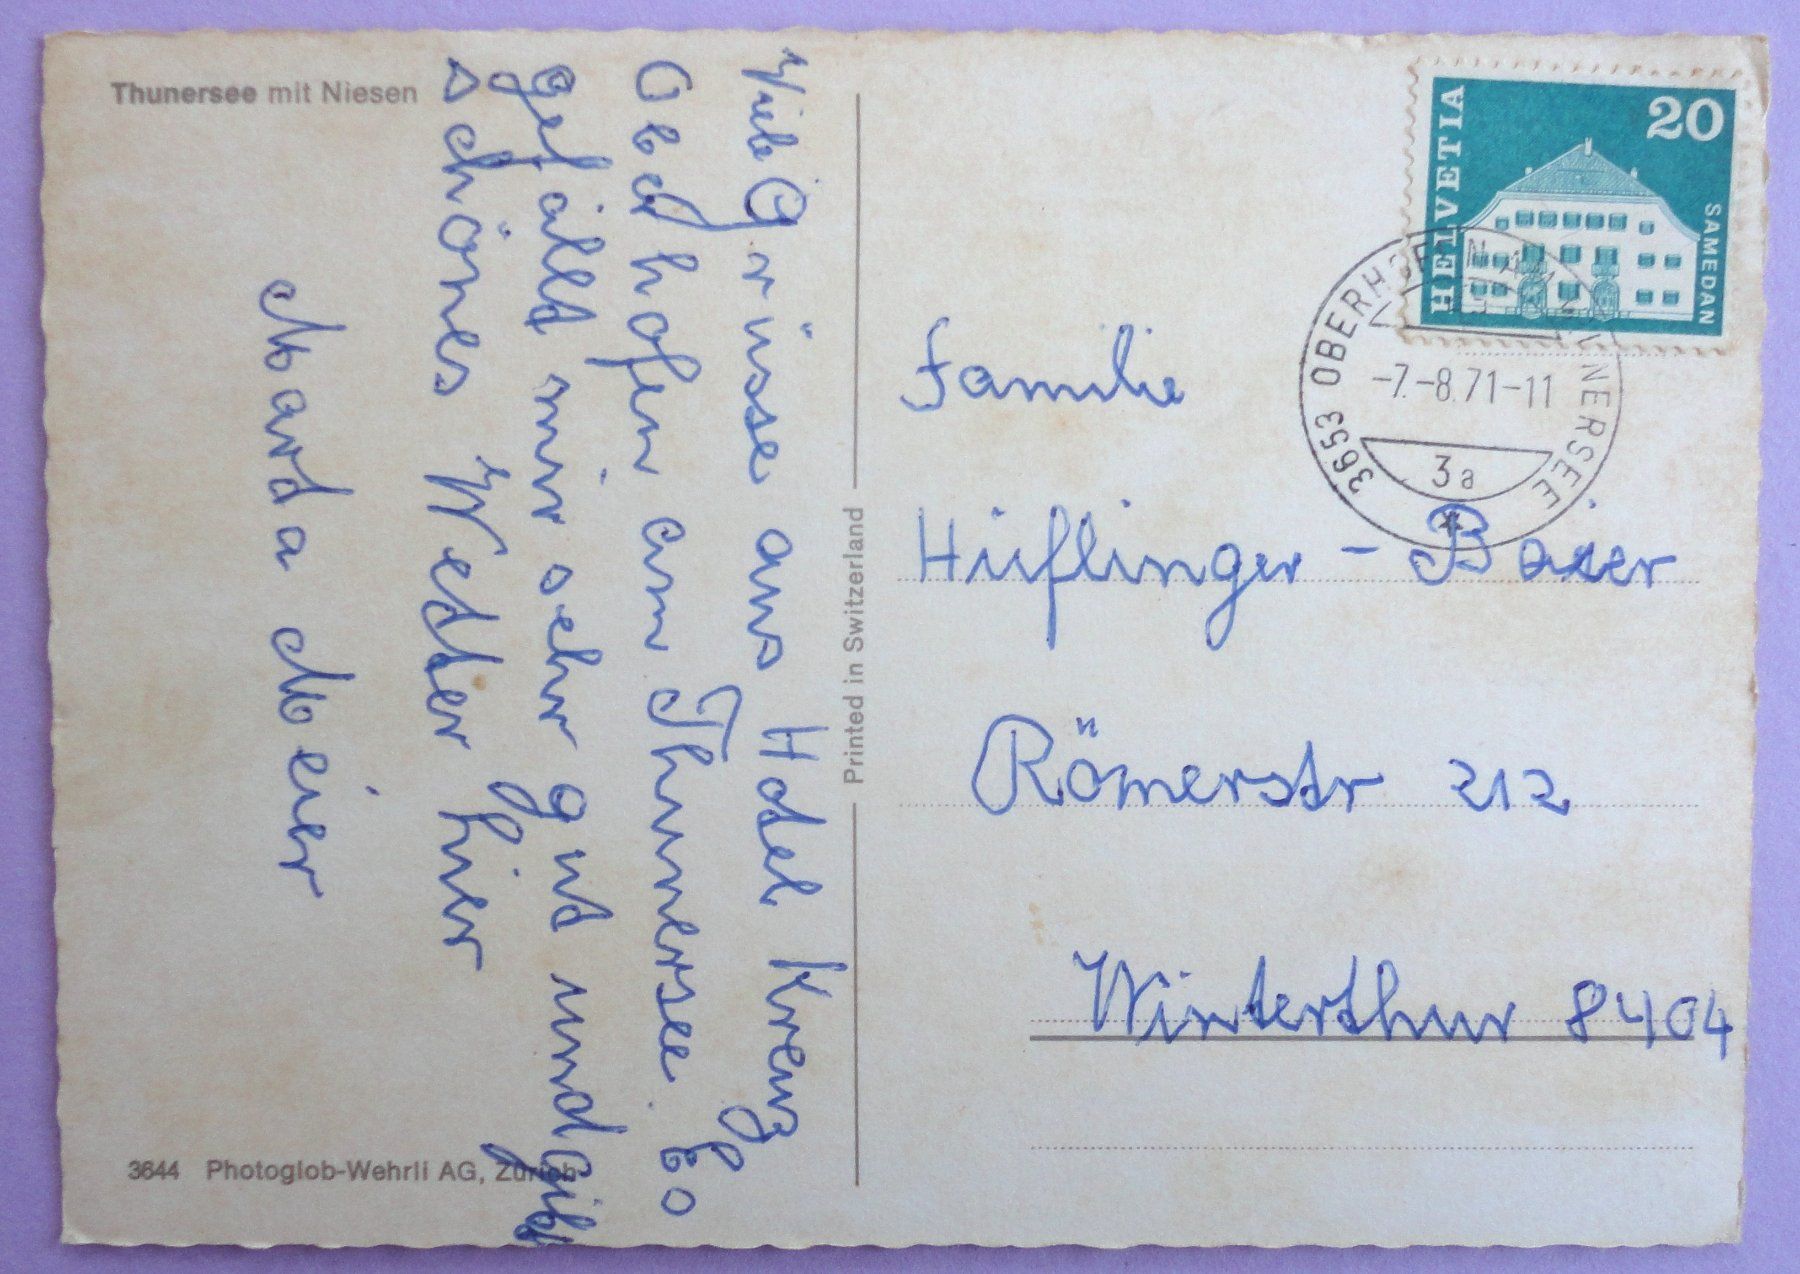 Thunersee mit Niesen
Viele Grüsse aus Hotel Kreuz
Oberhofen am Thunersee. Es
gefällt mir sehr gut und
schönes Wetter hier
Marda Meier
3644 Photoglob-Wehrli AG, Zürich
Printed in Switzerland
HELVETIA
20
SAMEDAN
3653 OBERHOFEN AM THUNERSEE
-7.-8.71-11
3a
Familie
Hüflinger - Baier
Römerstr 212
Winterthur 8404